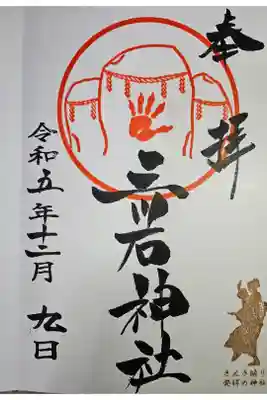 奉拝
三石神社
令和五年十二月 九日
さんさ踊り
発祥の神社